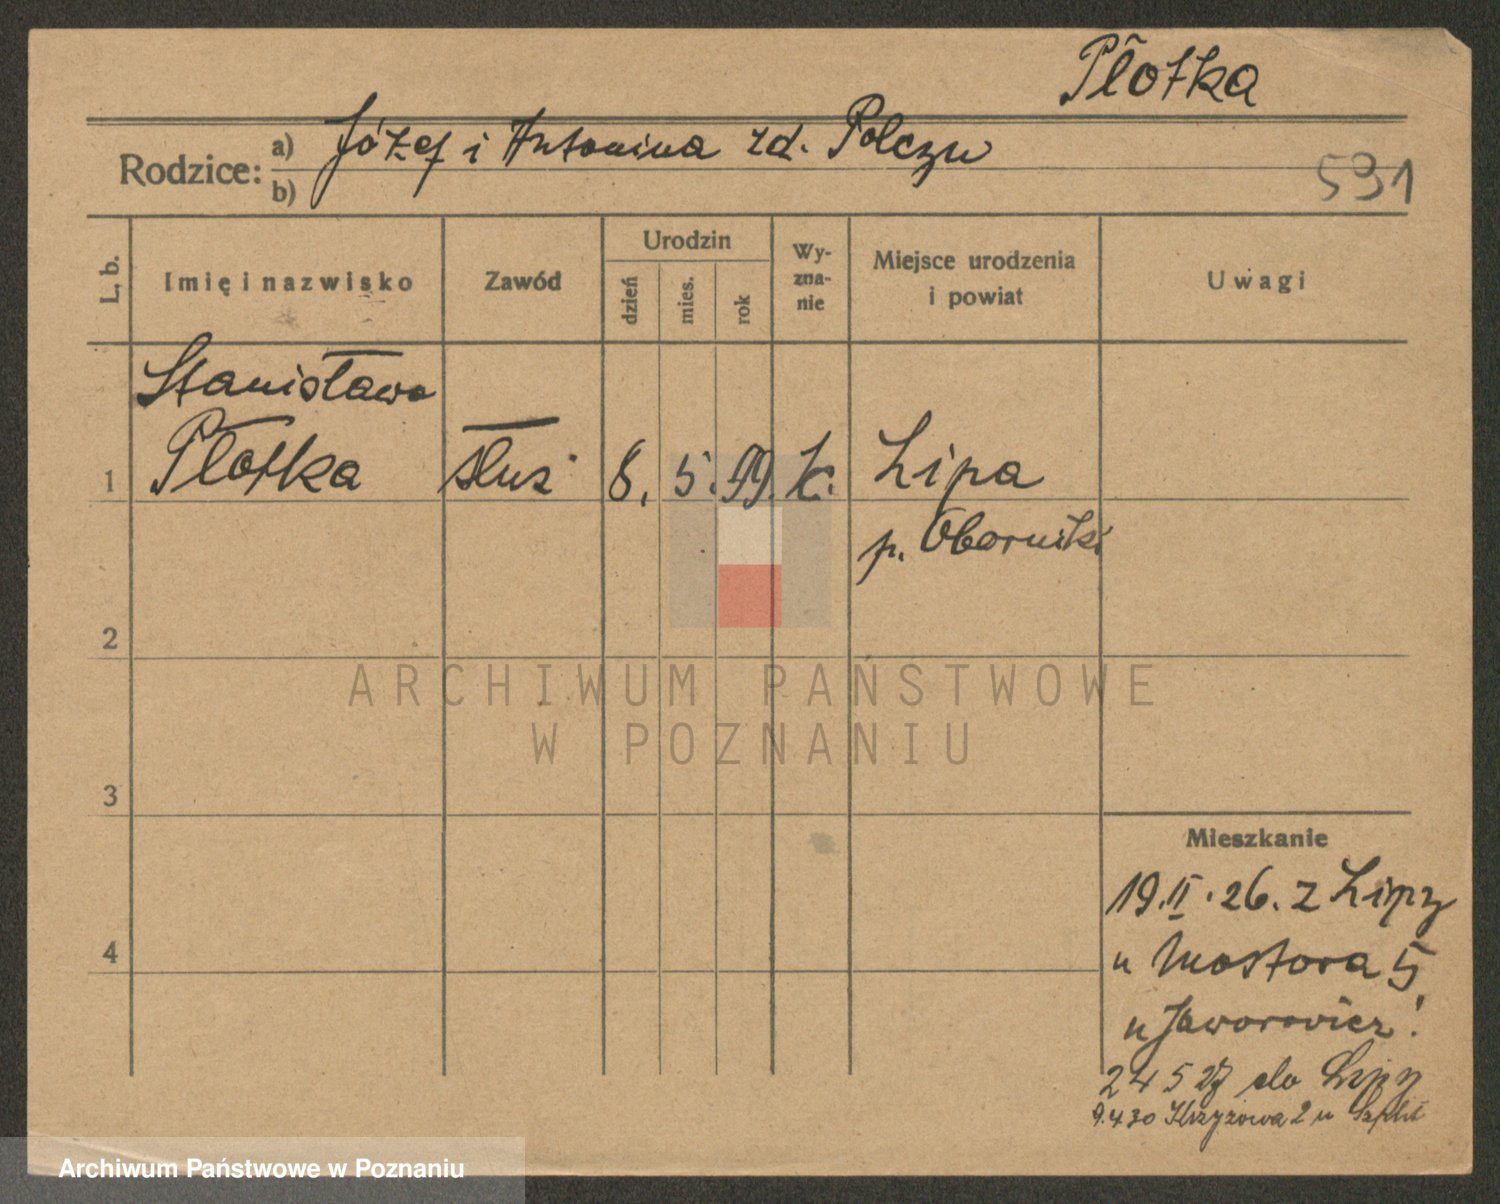 Płotka
Rodzice: a) Józef i Antonina zd. Polczyn
b)
591
L. b.
Imię i nazwisko
Zawód
Urodzin
dzień
mies.
rok
Wy-
zna-
nie
Miejsce urodzenia
i powiat
Uwagi
Stanisława
1 Płotka służ. 8. 5. 99. k. Lipa
p. Oborniki
2
ARCHIWUM PAŃSTWOWE
W POZNANIU
3
Mieszkanie
19.II.26. z Lipy
4
u Mostowa 5
u Jaworowicz
24 5 27 do Lipy
9.4.30 Krzyżowa 2 u
Archiwum Państwowe w Poznaniu